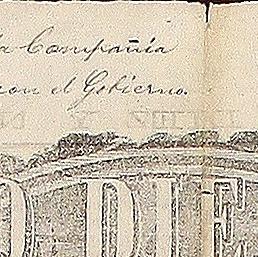 la Compañia
con el Gobierno.
O DIE